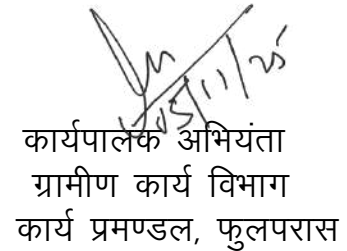 05/11/25
कार्यपालक अभियंता
ग्रामीण कार्य विभाग
कार्य प्रमण्डल, फुलपरास